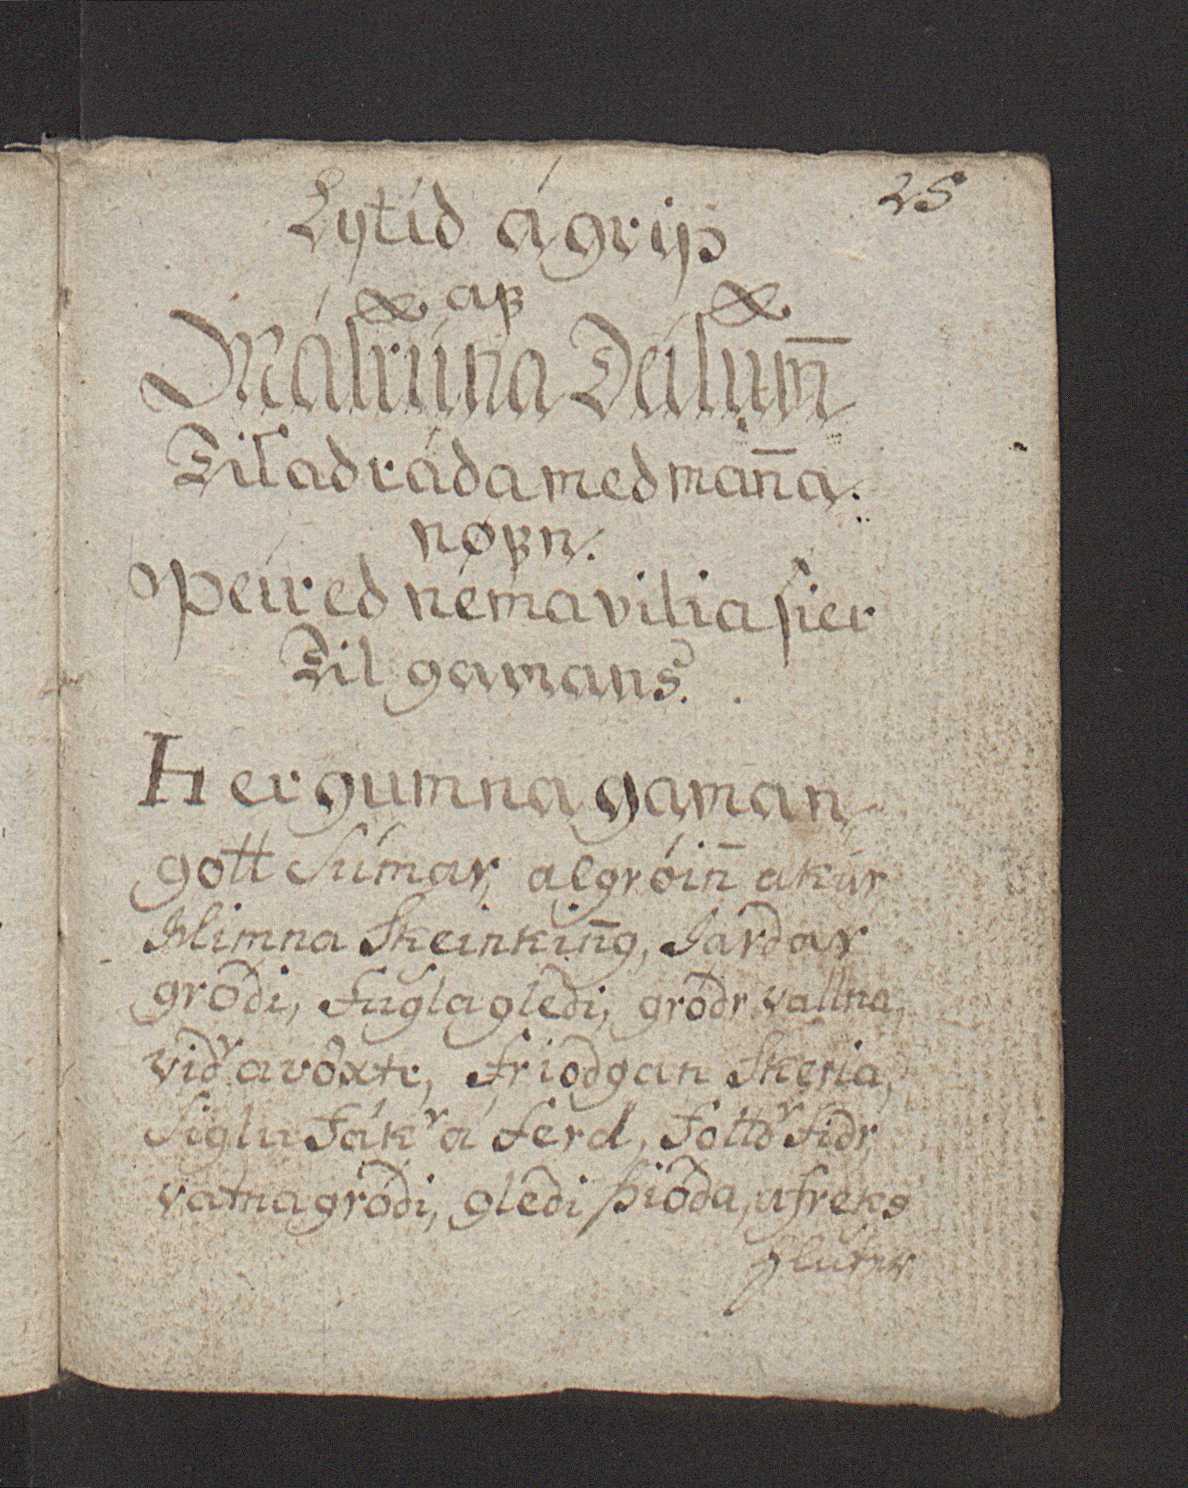 25
Lytid ágrip
af
Málrúna Deilum̄
Til ad ráda med man̄a
nøfn.
Þeir ed nema vilia sier
Til gamans.
Her gumna gaman
gott Súmar, algróin̄ akur
Himna Skeinkin̄g, Jardar
gródi, Fugla gledi, gródr vallna,
vidr avöxtr, friodgan Skeria,
Siglu Fákr á ferd, Fottr fidr,
vatna gródi, gledi þióda, afreks
hluter